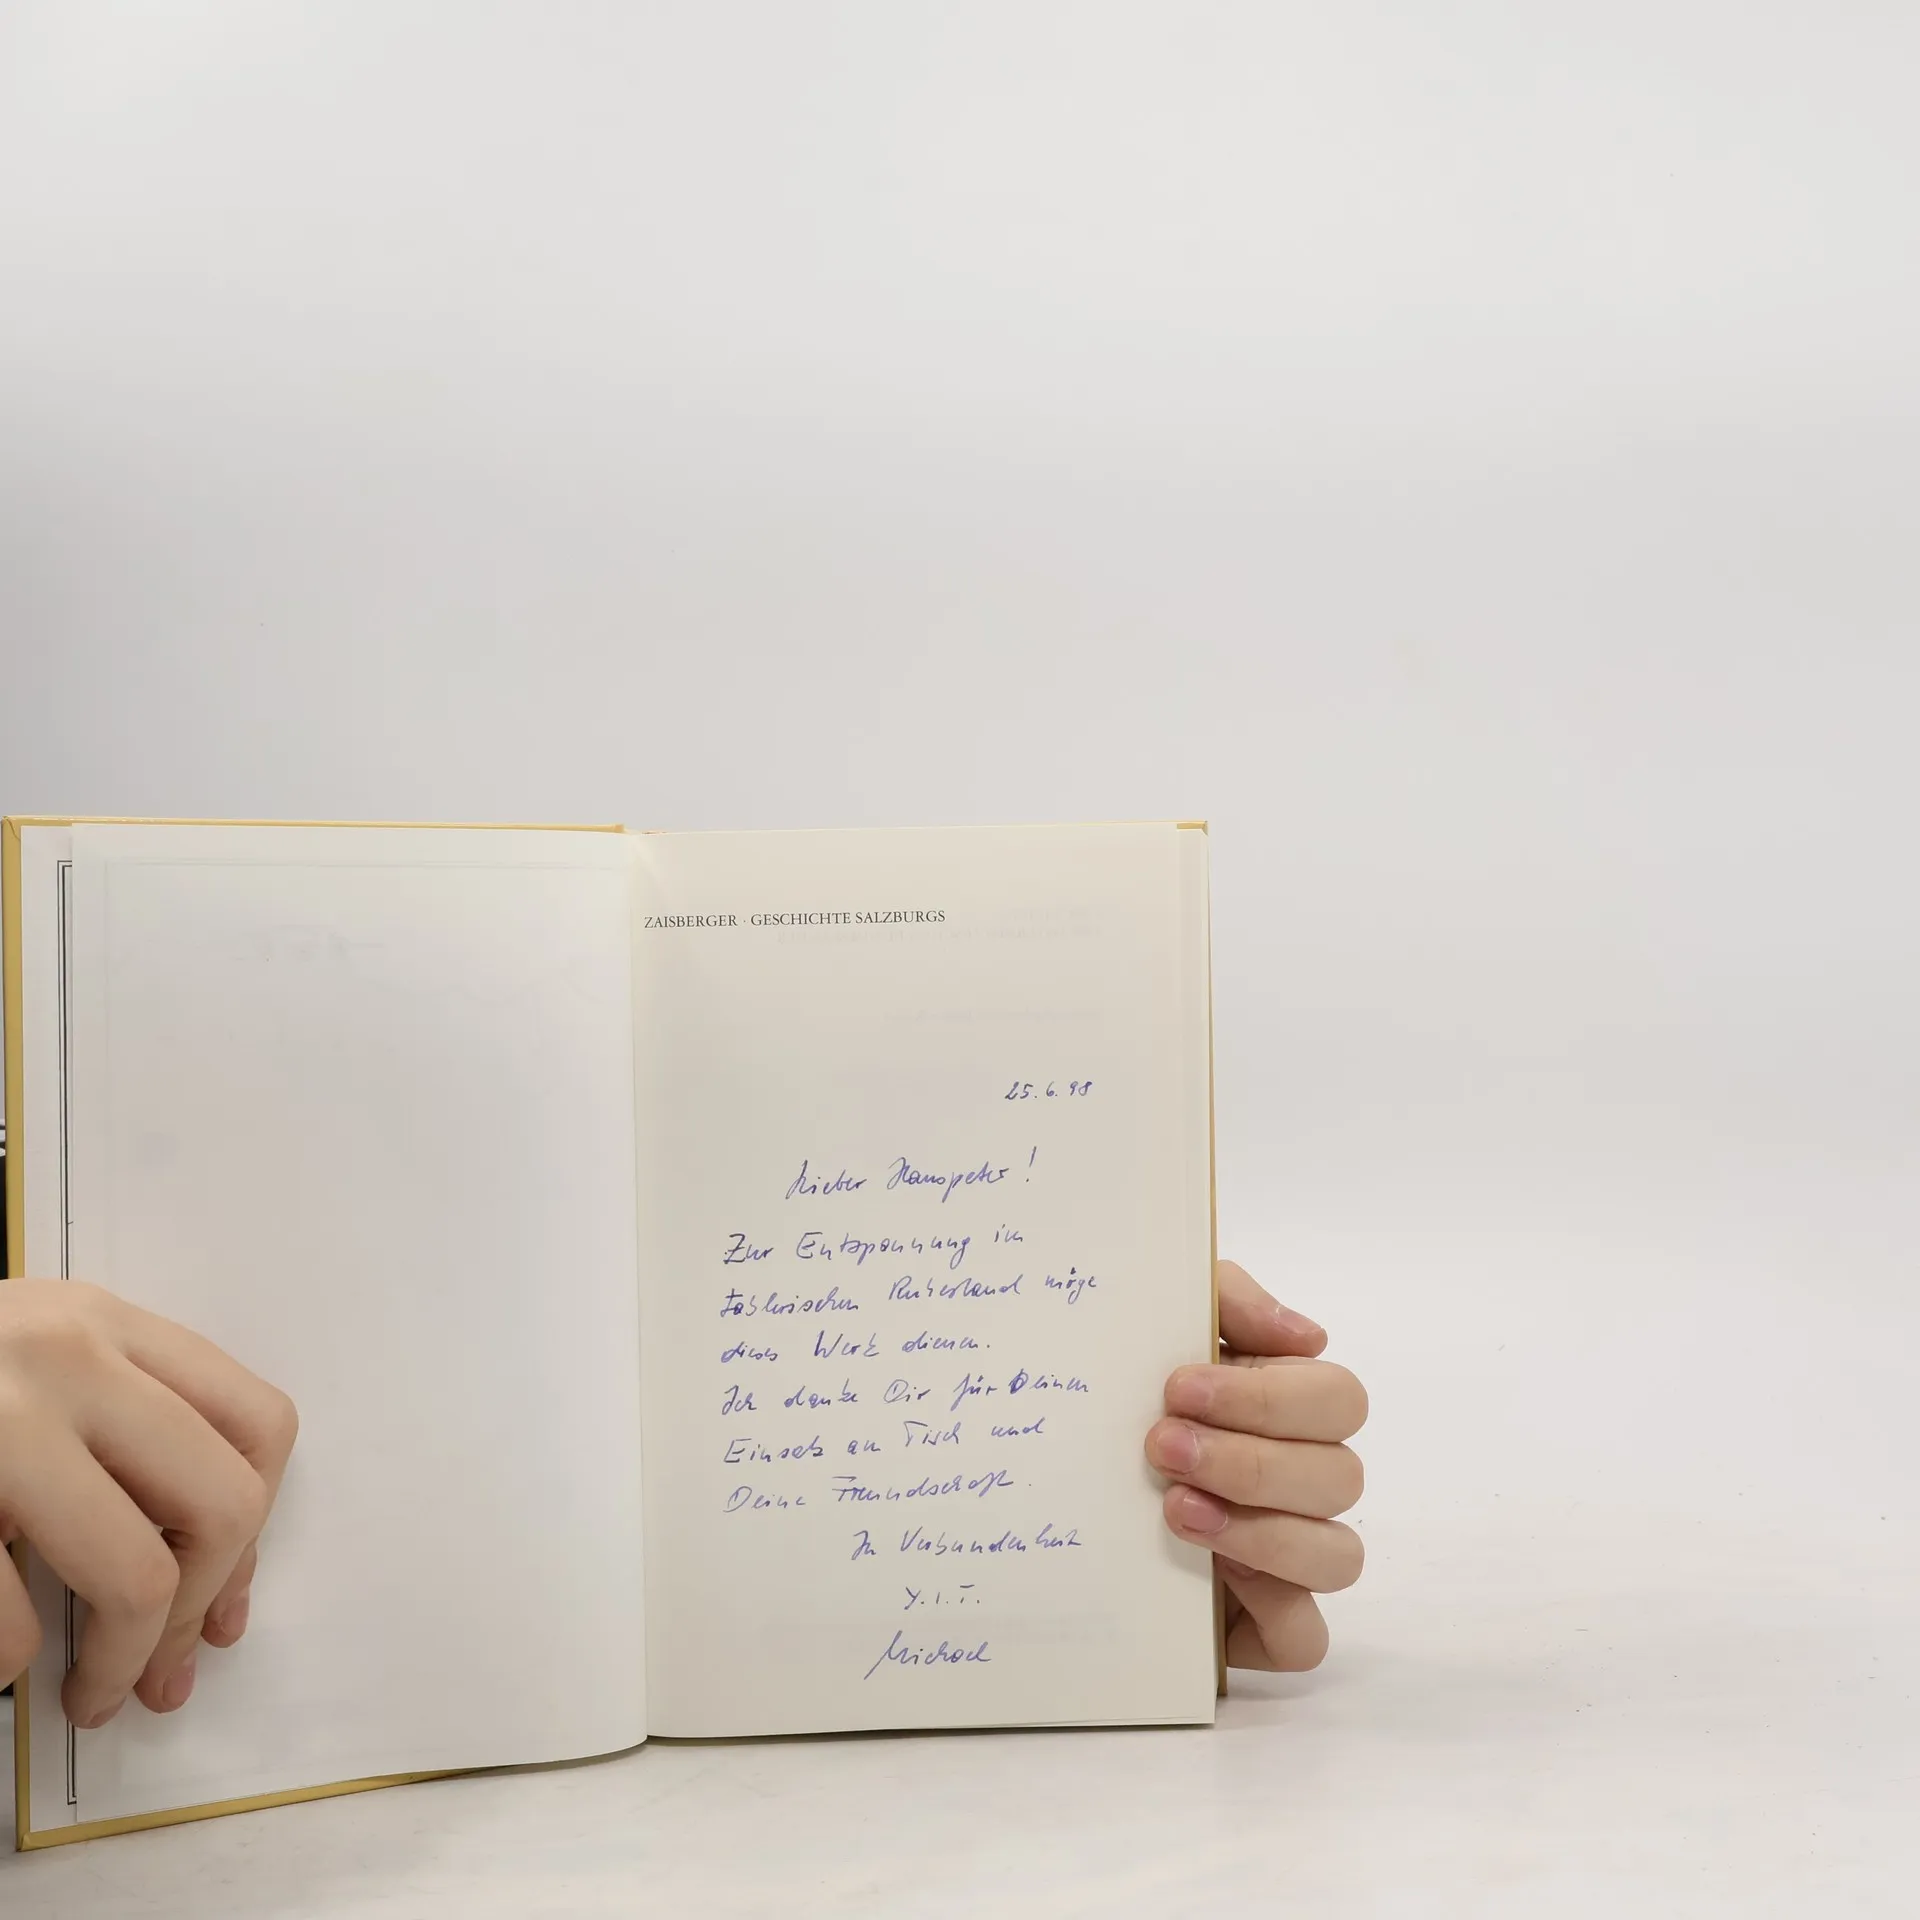 ZAISBERGER · GESCHICHTE SALZBURGS
25.6.98
Lieber Hanspeter!
Zur Entspannung im
tablerischen Ruhestand möge
dieses Werk dienen.
Ich danke Dir für Deinen
Einsatz am Tisch und
Deine Freundschaft.
In Verbundenheit
Y.I.T.
Michael